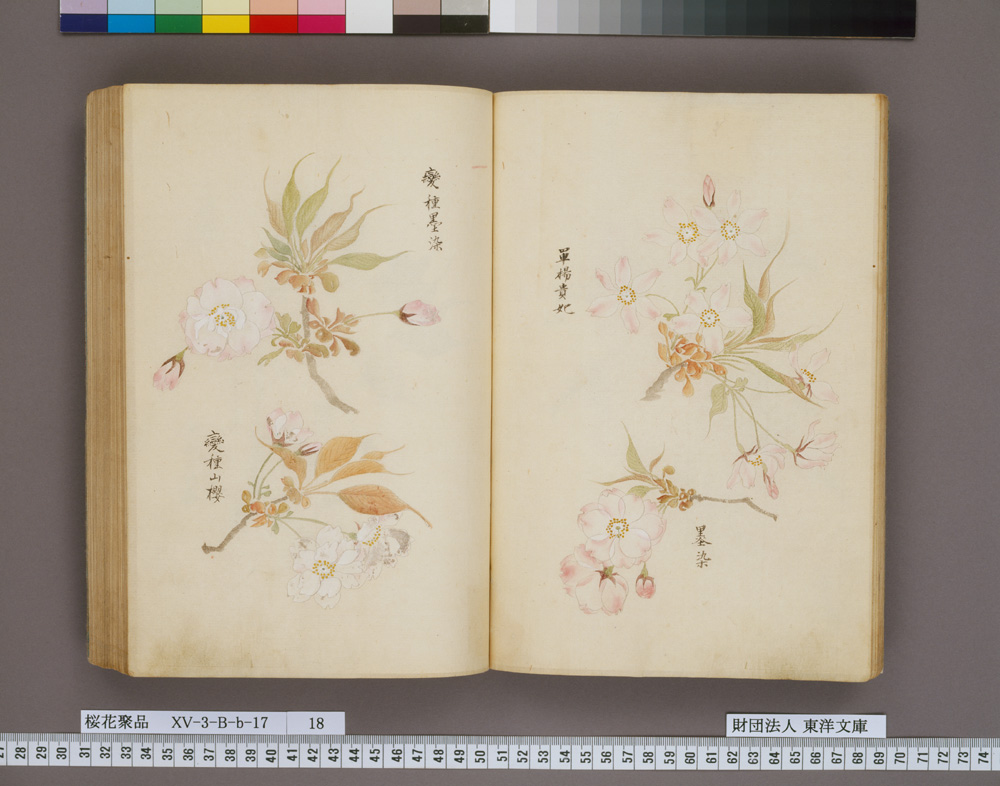 單楊貴妃
墨染
變種墨染
變種山櫻
桜花聚品 XV-3-B-b-17 18
財団法人 東洋文庫
27 28 29 30 31 32 33 34 35 36 37 38 39 40 41 42 43 44 45 46 47 48 49 50 51 52 53 54 55 56 57 58 59 60 61 62 63 64 65 66 67 68 69 70 71 72 73 74